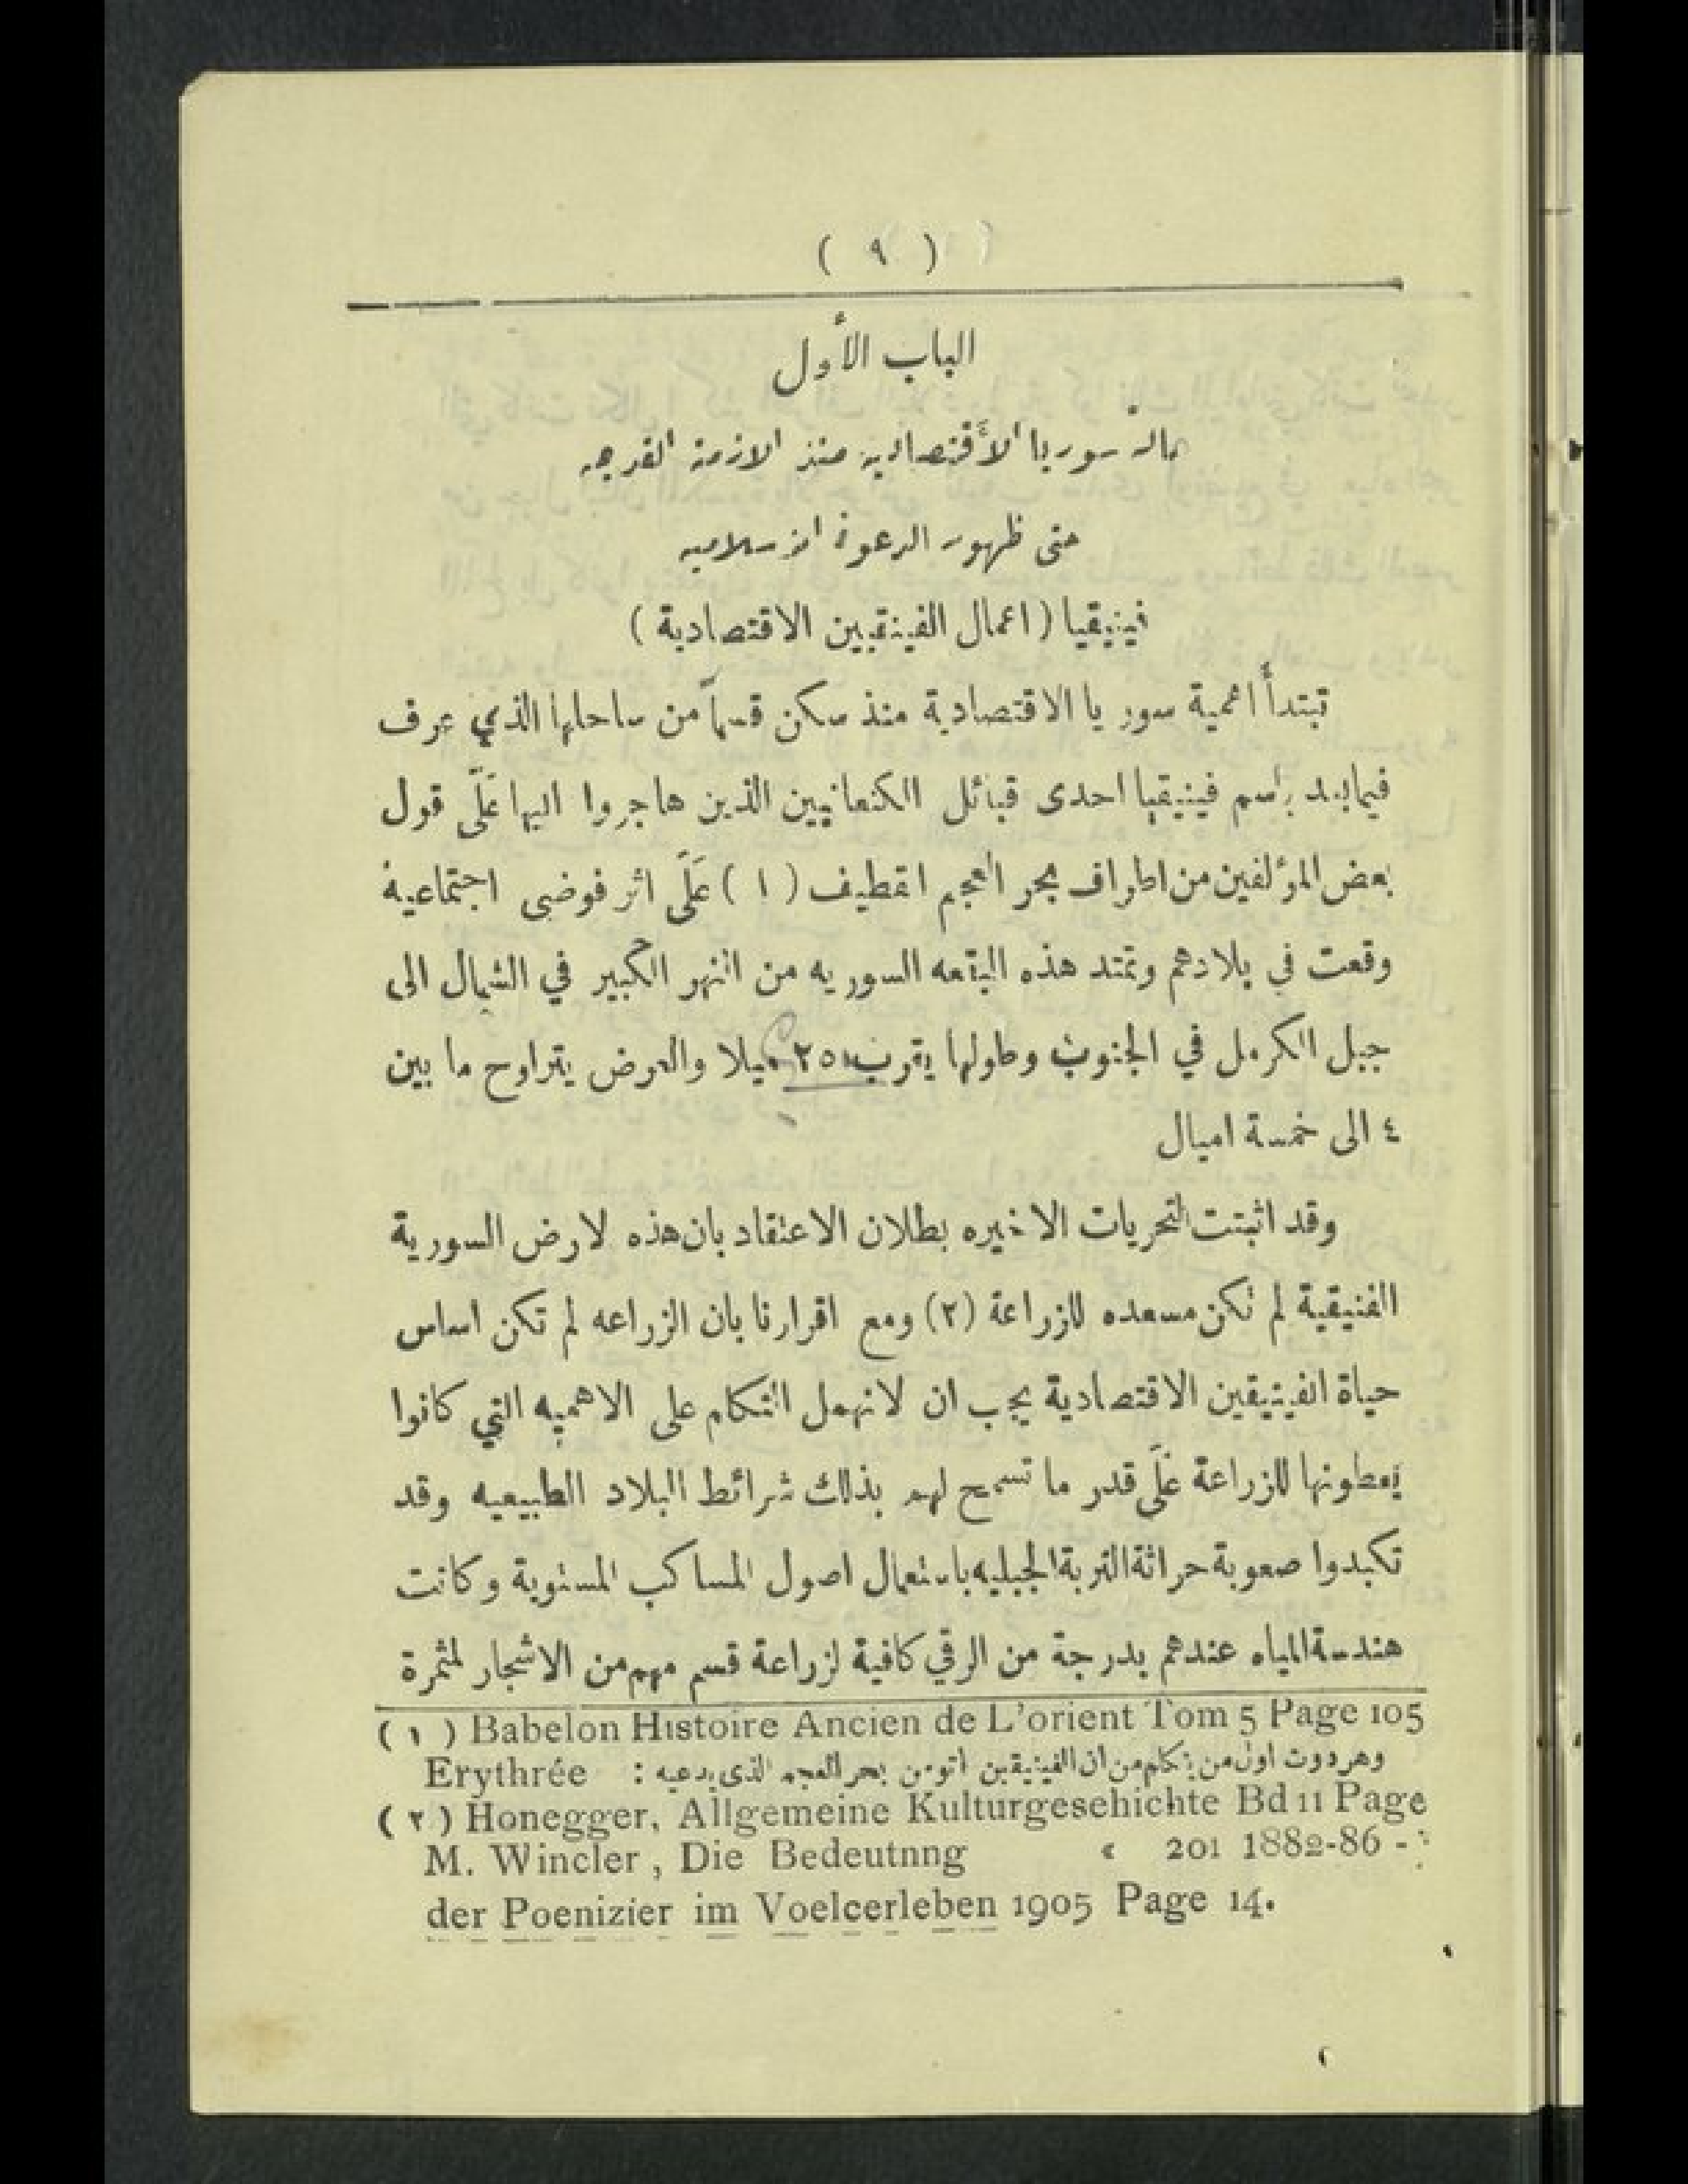 ( ٩ )
الباب الأول
حالة سوريا الاقتصادية منذ الازمنة القديمه
حتى ظهور الدعوة الاسلاميه
فينيقيا ( اعمال الفينقيين الاقتصادية )
تبتدأ اهمية سوريا الاقتصادية منذ سكن قسماً من ساحلها الذي عرف
فيما بعد باسم فينيقيا احدى قبائل الكنعانيين الذين هاجروا اليها عَلَى قول
بعض المؤلفين من اطراف بحر العجم القطيف ( ١ ) عَلَى اثر فوضى اجتماعية
وقعت في بلادهم وتمتد هذه البقعه السوريه من النهر الكبير في الشمال الى
جبل الكرمل في الجنوب وطولها يقرب ٢٥٠ ميلا والعرض يتراوح ما بين
٤ الى خمسة اميال
وقد اثبتت التحريات الاخيره بطلان الاعتقاد بان هذه لارض السورية
الفنيقية لم تكن مسعده للزراعة (٢) ومع اقرارنا بان الزراعه لم تكن اساس
حياة الفينيقين الاقتصادية يجب ان لانهمل التكلم على الاهميه التي كانوا
يعطونها للزراعة عَلَى قدر ما تسمح لهم بذلك شرائط البلاد الطبيعيه وقد
تكبدوا صعوبة حراثة التربة الجبليه باستعمال اصول المساكب المستوية وكانت
هندسة المياه عندهم بدرجة من الرقي كافية لزراعة قسم مهم من الاشجار لمثمرة
( ١ ) Babelon Histoire Ancien de L'orient Tom 5 Page 105
وهردوت اول من تكلم من ان الفينيقين اتو من بحر العجم الذى يدعيه : Erythrée
( ٢ ) Honegger, Allgemeine Kulturgesehichte Bd 11 Page
M. Wincler , Die Bedeutnng « 201 1882-86 -
der Poenizier im Voelcerleben 1905 Page 14.